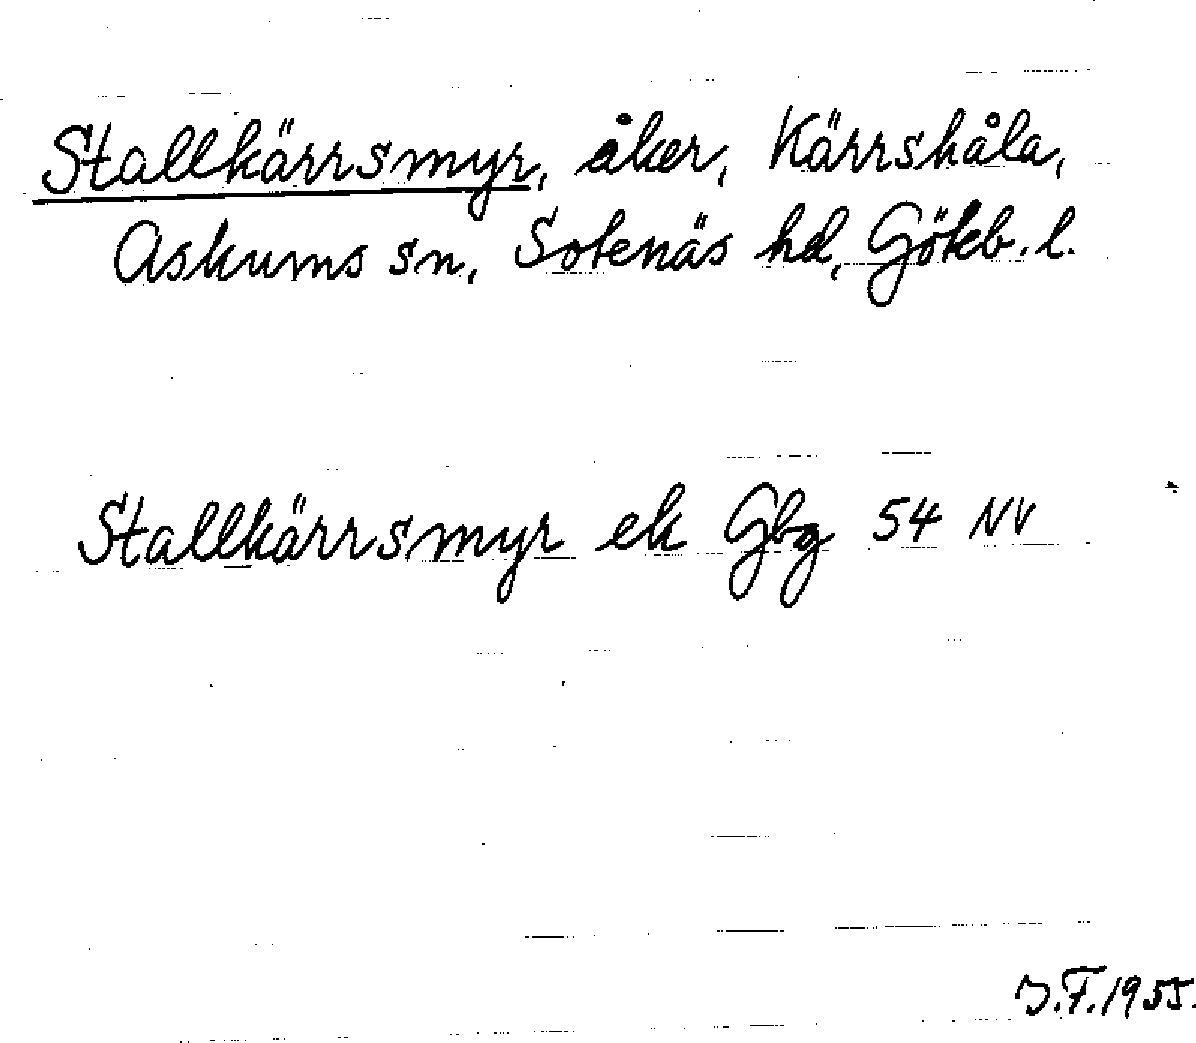 Stallkärrsmyr, åker, Kärrshåla,
Askums sn, Sotenäs hd, Göteb. l.
Stallkärrsmyr ek Gbg 54 NV
J.F. 1955.